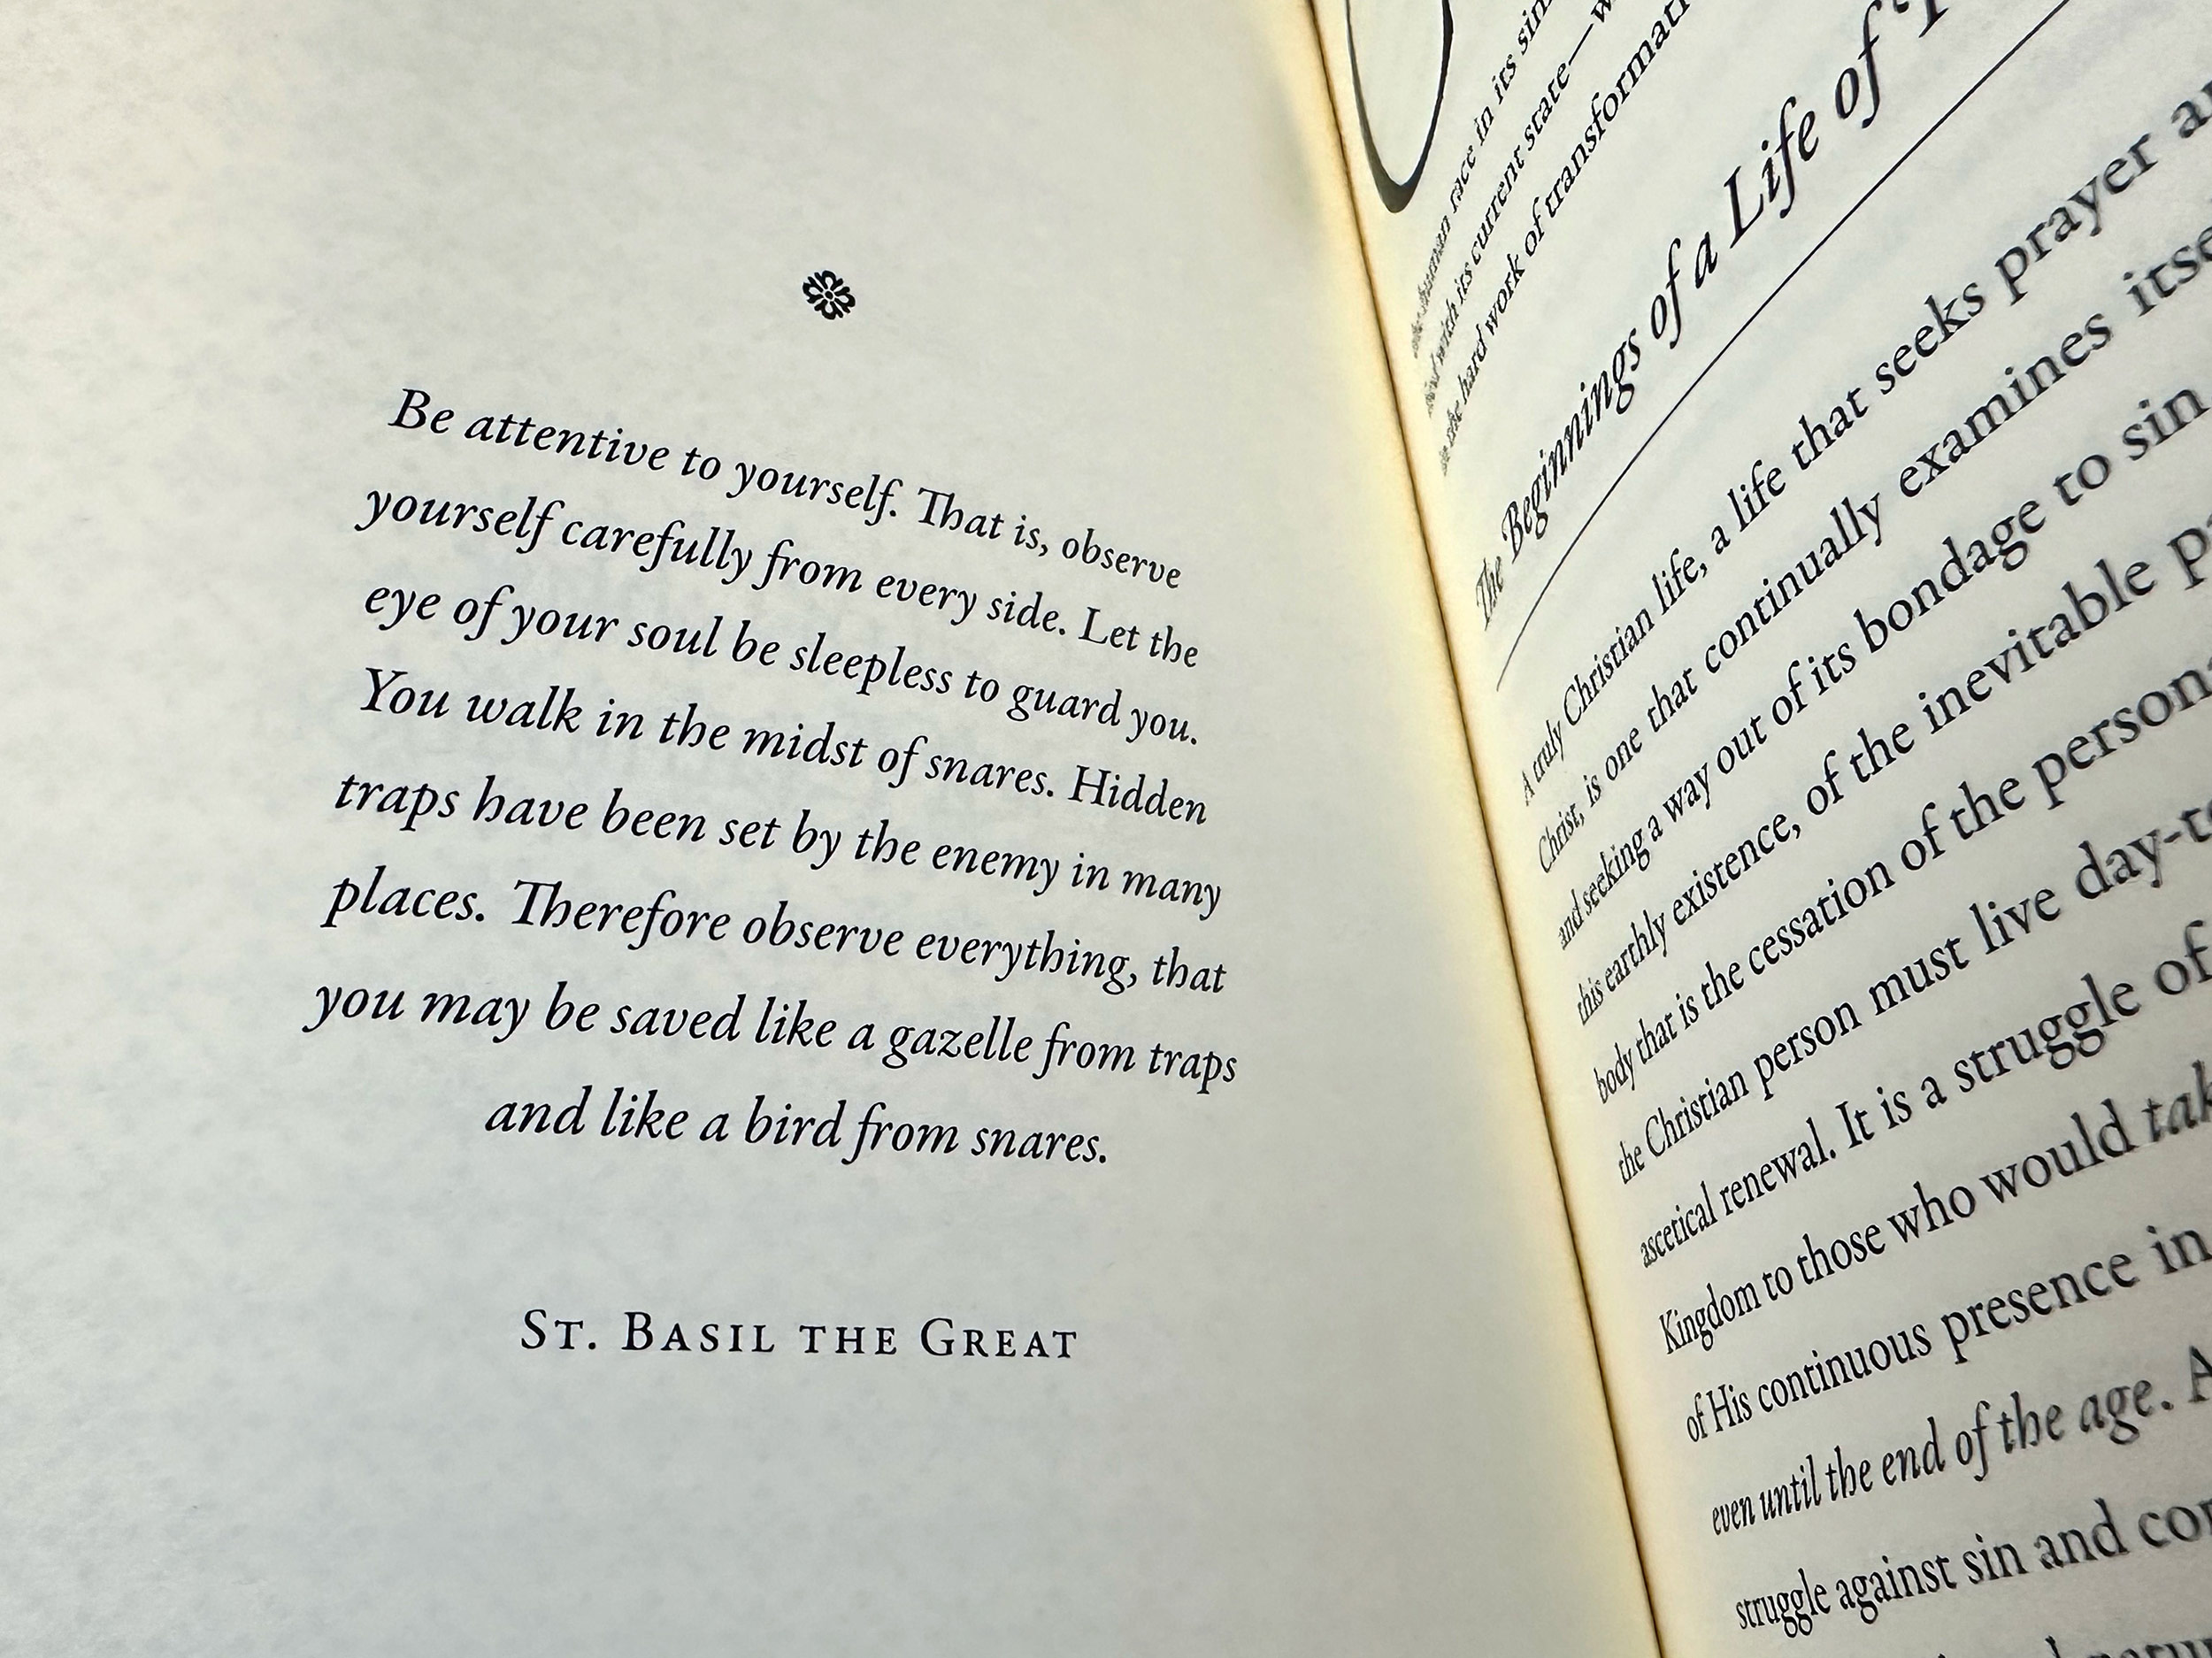 Be attentive to yourself. That is, observe
yourself carefully from every side. Let the
eye of your soul be sleepless to guard you.
You walk in the midst of snares. Hidden
traps have been set by the enemy in many
places. Therefore observe everything, that
you may be saved like a gazelle from traps
and like a bird from snares.
ST. BASIL THE GREAT
human race in its
with its current state—
hard work of
The Beginnings of a Life of
A truly Christian life, a life that seeks prayer
Christ, is one that continually examines
and seeking a way out of its bondage to sin
this earthly existence, of the inevitable
body that is the cessation of the
the Christian person must live
ascetical renewal. It is a struggle of
Kingdom to those who would
of His continuous presence in
even until the end of the age.
struggle against sin and